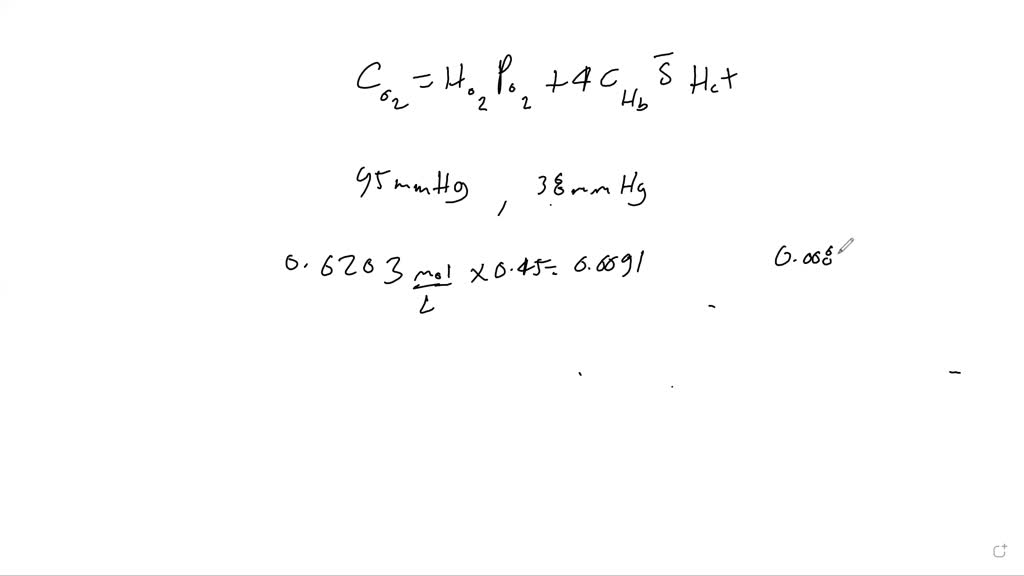 C_{O_2} = H_{O_2} P_{O_2} + 4 C_{Hb} S̄ Hct
95mmHg , 38mmHg
0.0203 mol/L × 0.45 = 0.0091 0.008